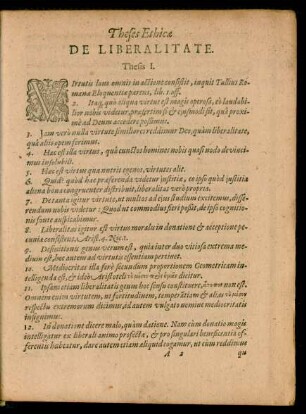 Theses Ethicæ
DE LIBERALITATE.
Thesis I.
VIrtutis laus omnis in actione consistit, inquit Tullius Ro-
manæ Eloquentiæ parens, lib. 1. off.
2. Itaq; quo aliqua virtus est magis operosa, eò laudabi-
lior nobis videtur, præsertim si ejusmodi sit, quâ proxi-
mè ad Deum accedere possimus.
3. Jam verò nulla virtute similiores reddimur Deo, quàm liberalitate,
quâ aliis opem ferimus.
4. Hæc est illa virtus, quâ cunctos homines nobis quasi nodo devinci-
mus insolubili.
5. Hæc est virtus quâ nutrit egenos, virtutes alit.
6. Quòd si quid hac præferenda videtur justitia, eò ipso quòd justitia
aliena bona congruenter distribuit, liberalitas verò propria.
7. De tanta igitur virtute, ut nostras ad ejus studium excitemus, disse-
rendum nobis videtur: Quod ut commodius fieri possit, de ipsa cognitio-
nis fonte auspicabimur.
8. Liberalitas igitur est virtus moralis in danatione & acceptione pe-
cuniæ consistens 1. Arist. 4. Nic. 1.
9. Definitionis genus verum est, quia inter duo vitiosa extrema me-
dium est, hoc autem ad virtutis essentiam pertinet.
10. Mediocritas illa fere secundum proportionem Geometricam in-
telligenda est, & ideò Aristoteli dicitur.
11. Ipsam etiam liberalitatis genus hoc sensu constituere, non est.
Omnem enim virtutem, ut fortitudinem, temperantiam &
respectu extremorum dicimus, ad autem vulgato nomine mediocritatis
insignimus.
12. In donatione dicere malo, quàm datione. Nam cum donatio magis
intelligatur ex liberali animo profecta, & pro singulari beneficiatio of-
ferentis habeatur, dare autem etiam aliquid cogamur, ut cum reddimus
A 2 qu